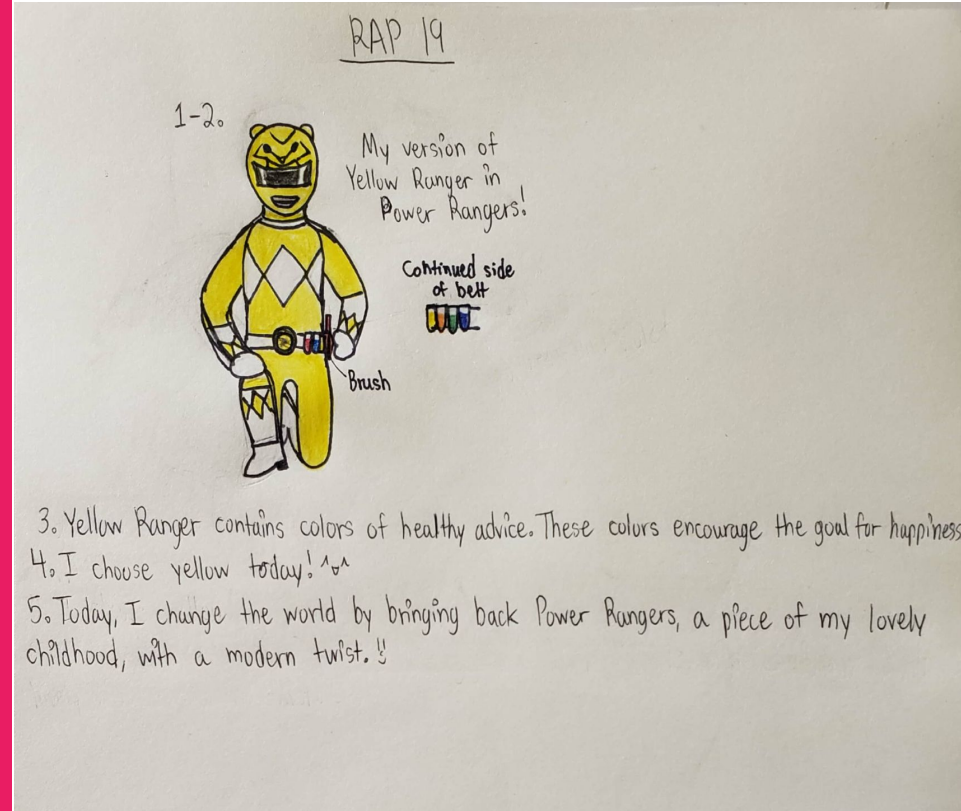 RAP 19
1-2.
My version of
Yellow Ranger in
Power Rangers!
Continued side
of belt
Brush
3. Yellow Ranger contains colors of healthy advice. These colors encourage the goal for happiness
4. I choose yellow today! ^v^
5. Today, I change the world by bringing back Power Rangers, a piece of my lovely
childhood, with a modern twist. !!